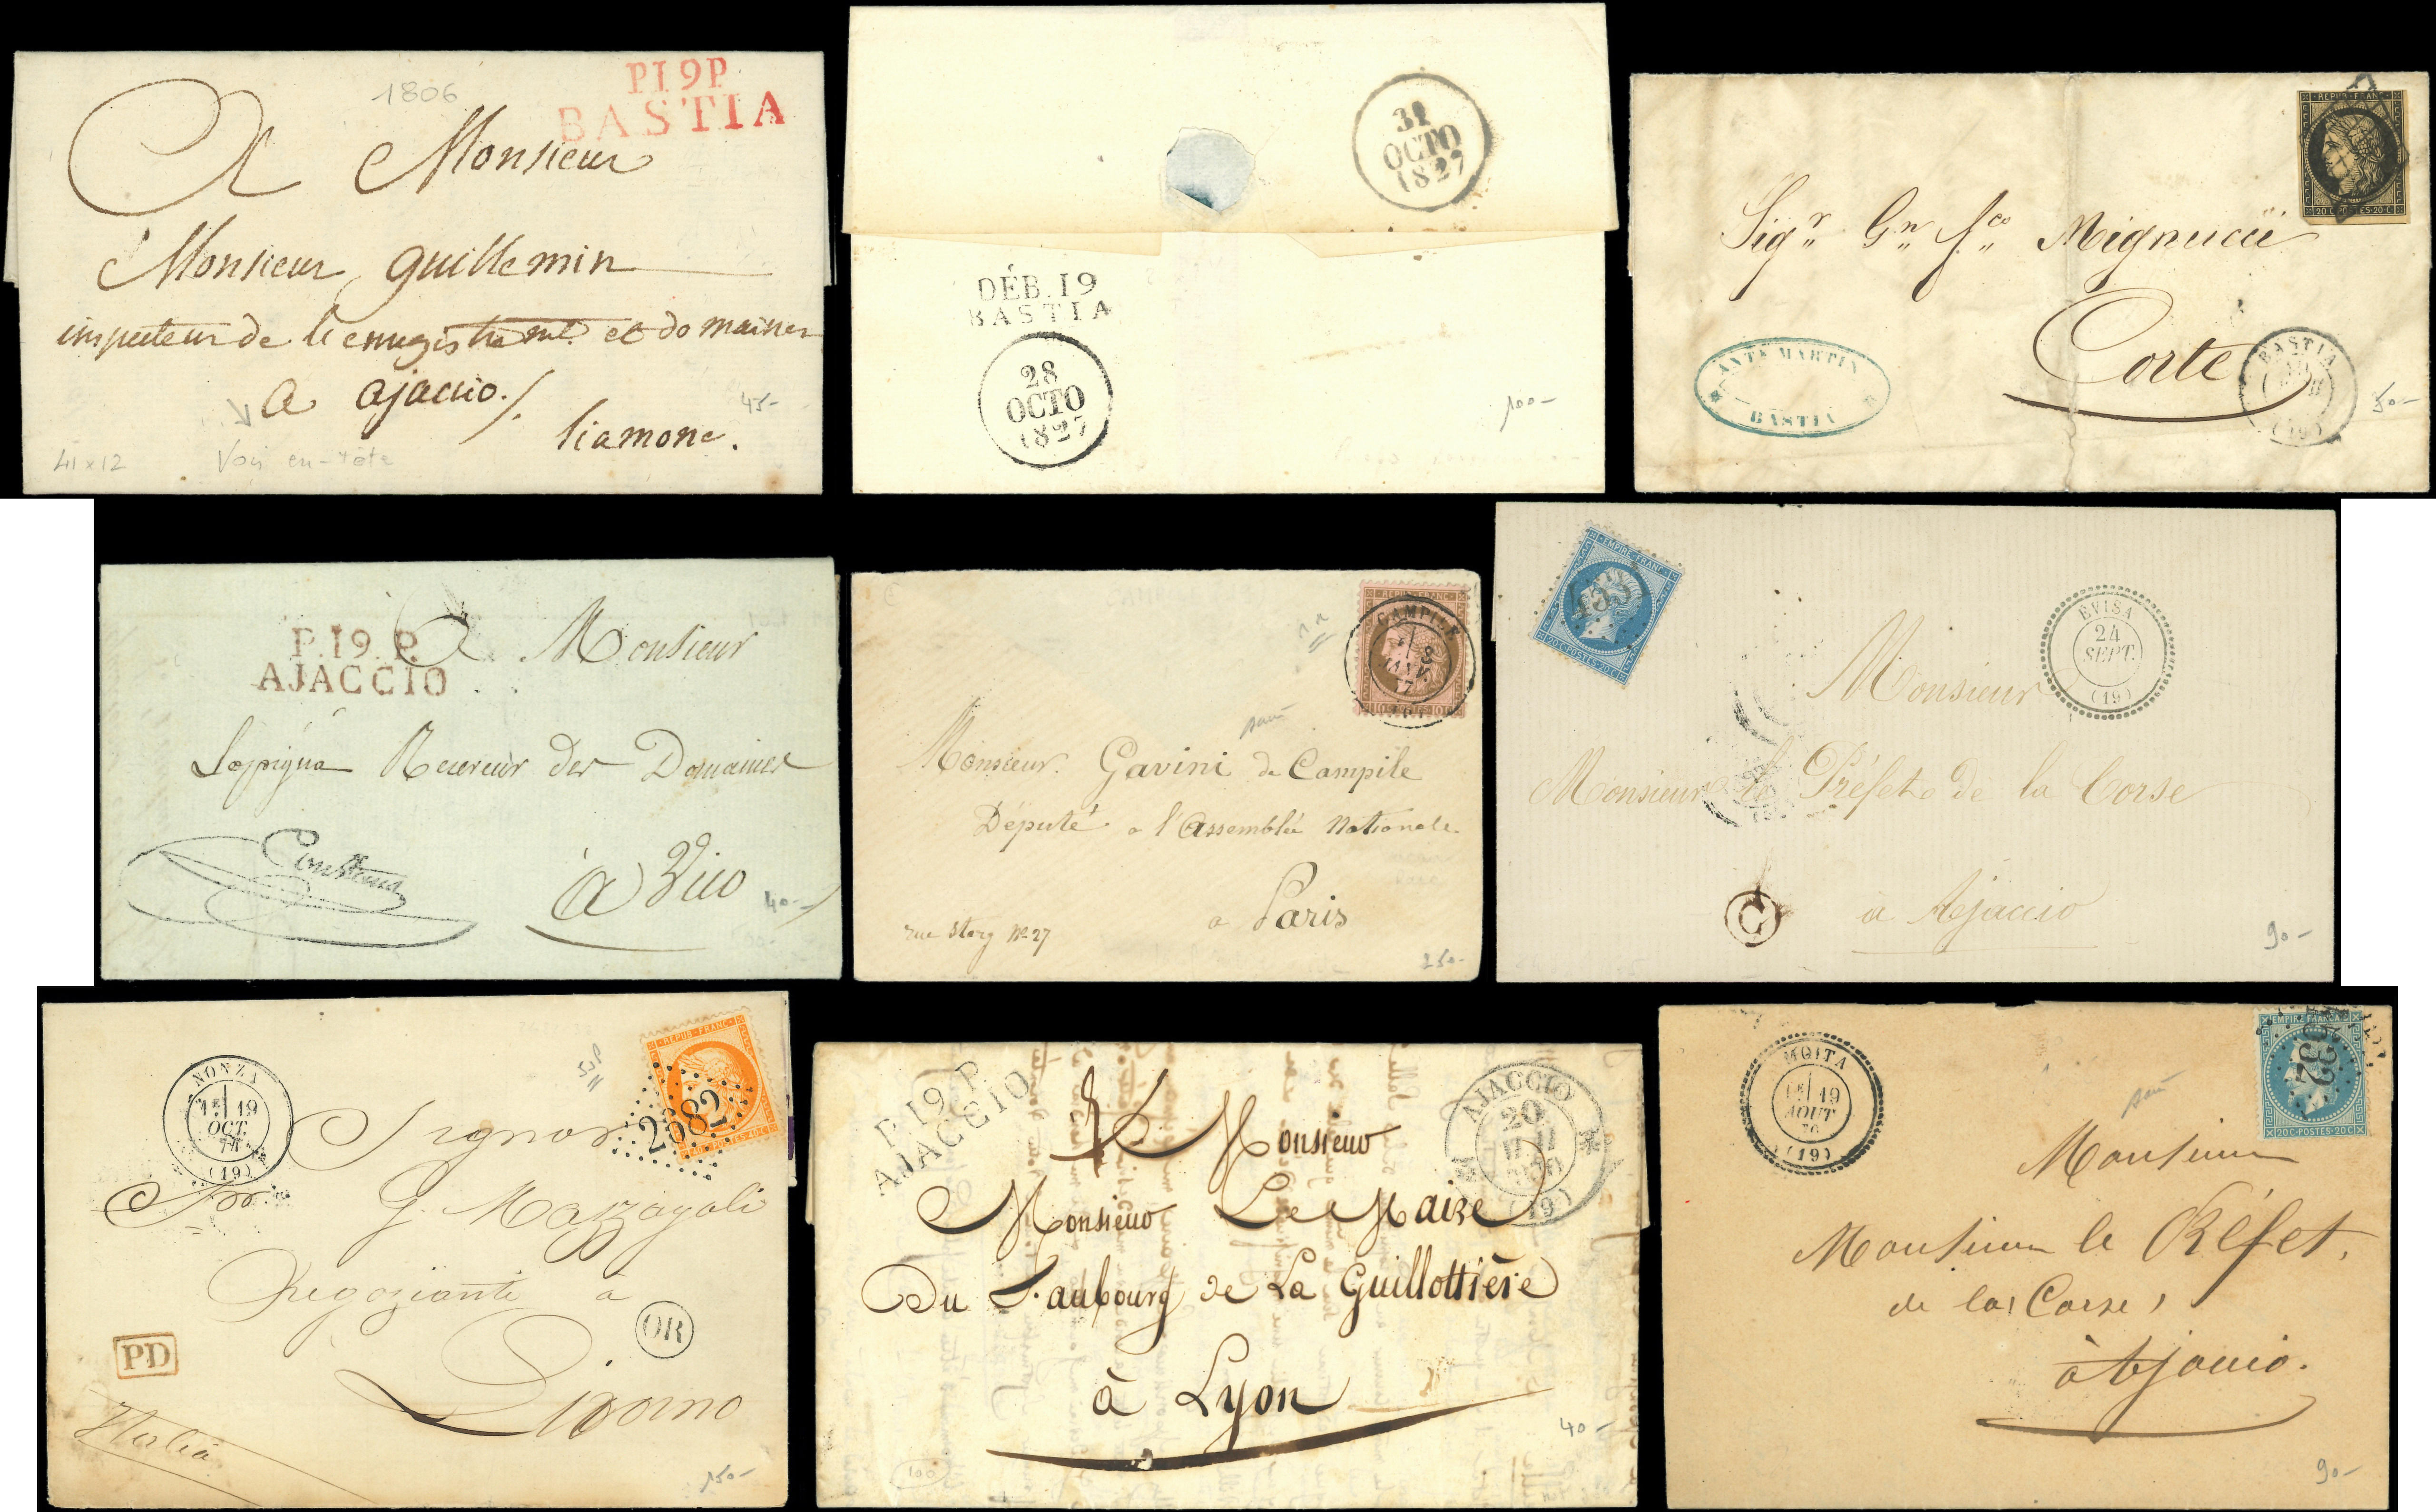 1806
P19P
BASTIA
A Monsieur
Monsieur Guillemin
inspecteur de l'enregistrement et domaines
a ajaccio./.
liamone.
45-
41x12
Voir en-tête
31
OCTO
1827
DÉB.19
BASTIA
28
OCTO
1827
100-
REPUB. FRANC.
20 C. POSTES. 20 C
Sigr Gn fco Mignucci
Corte
ANTE MARTIN
BASTIA
BASTIA
(19)
50-
P.19.P.
AJACCIO
A Monsieur
Receveur des Domaines
à Vico
40-
REPUB. FRANC.
10 C. POSTES. 10 C
CAMPILE
8
JANV.
Monsieur Gavini de Campile
Député a l'Assemblée Nationale
a Paris
rue Story No 27
250-
EMPIRE FRANC.
20 C. POSTES. 20 C
EVISA
24
SEPT.
(19)
Monsieur
Monsieur le Préfet de la Corse
C
à Ajaccio
90-
NONZA
1E 19
OCT.
74
(19)
REPUB. FRANC.
POSTES. 40 C
2682
Signor
G. Mazzagoli
Negoziante a
OR
PD
Livorno
Italia
150-
P.19.P.
AJACCIO
AJACCIO
20
(19)
Monsieur
Monsieur Le Maire
Du Faubourg de La Guillottière
à Lyon
100
40-
MOITA
1E 19
AOUT
70
(19)
EMPIRE FRANÇAIS
20 C. POSTES. 20 C
Monsieur
Monsieur le Préfet
de la Corse,
à Ajaccio.
90-